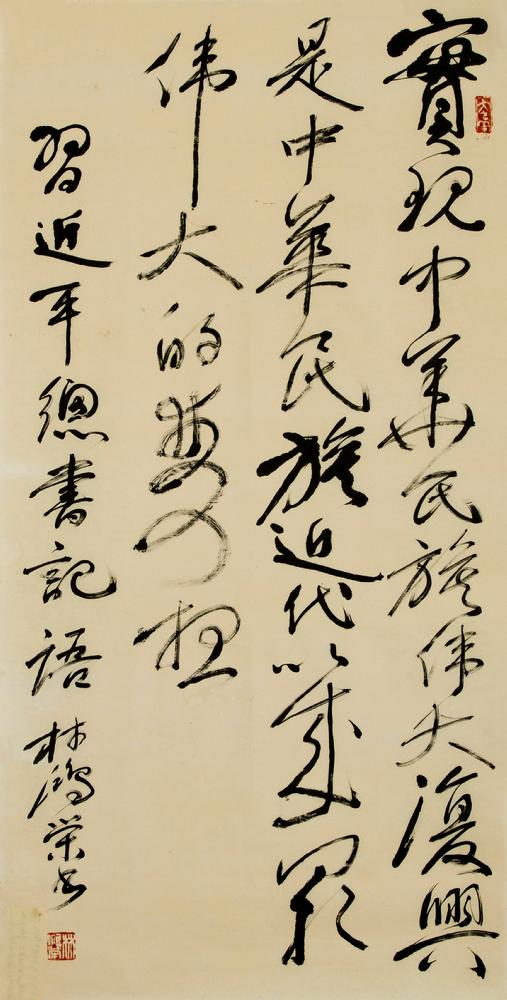 實現中華民族偉大復興
是中華民族近代以來最
偉大的夢想
習近平總書記語 林鴻榮書